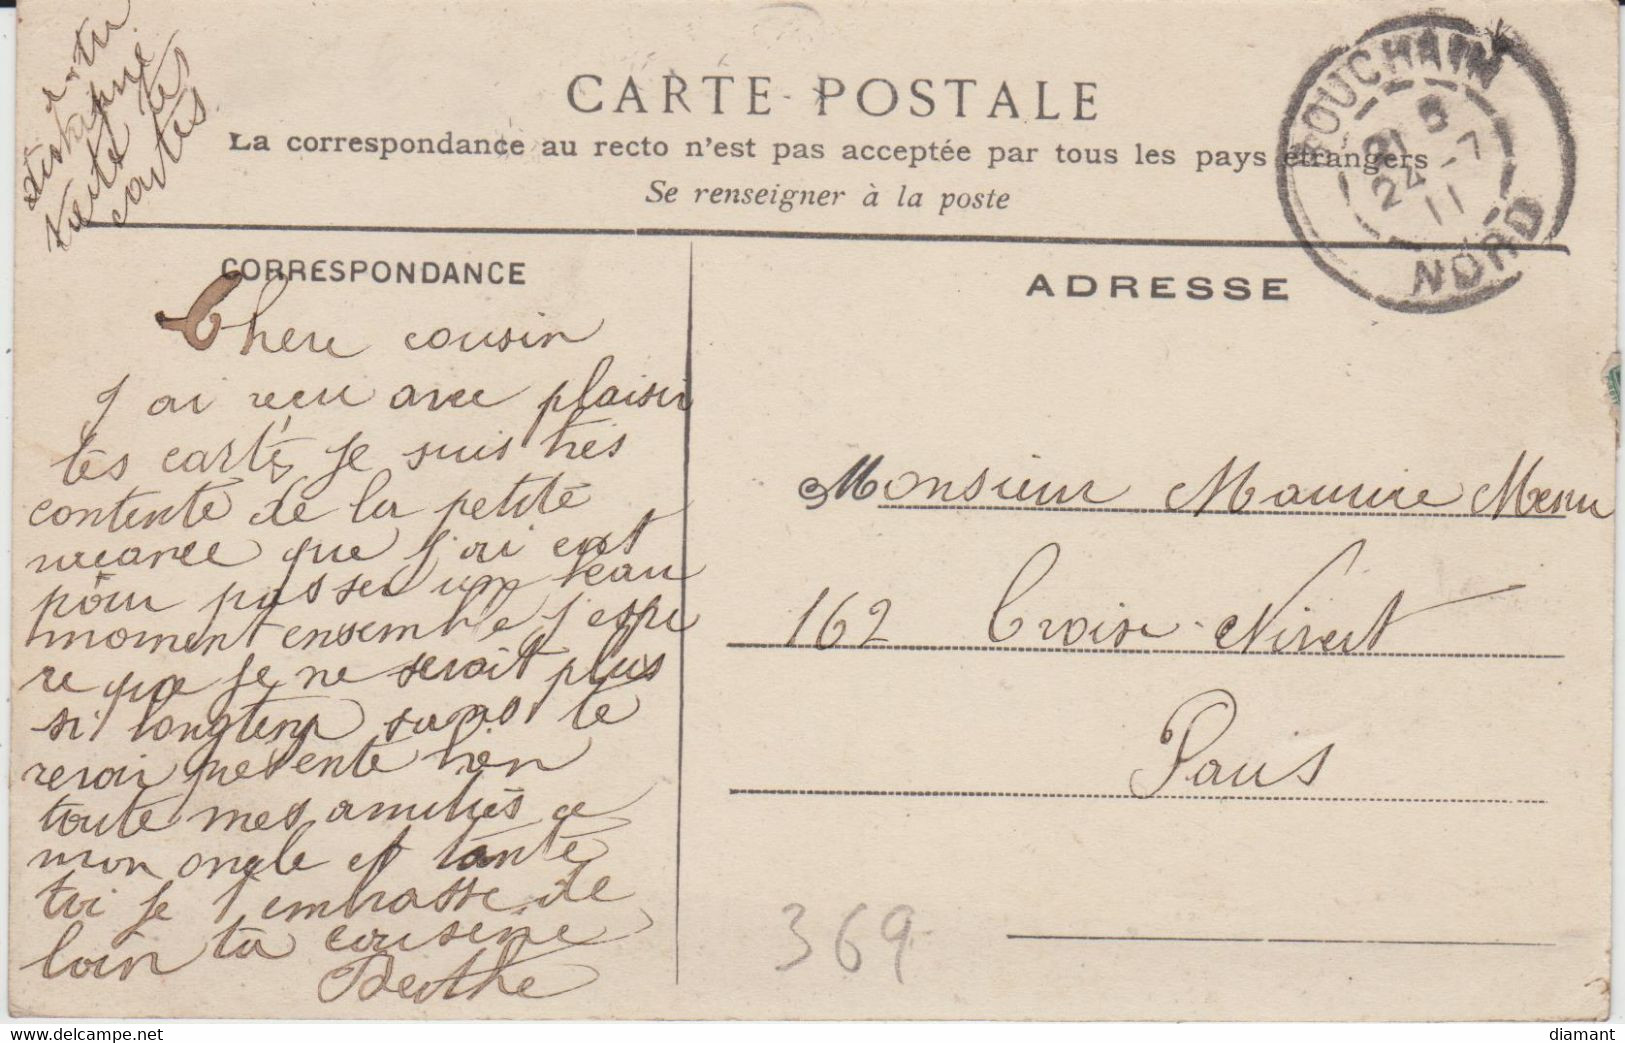 CARTE POSTALE
La correspondance au recto n'est pas acceptée par tous les pays étrangers
Se renseigner à la poste
BOUCHAIN
24-7
11
NORD
toute tes
cartes
CORRESPONDANCE
ADRESSE
Chere cousin
J ai recu avec plaisir
tes carte je suis tres
contente de la petite
vacance que j'ai est
pour passer un beau
moment ensemble j'espe
re que je ne serait plus
si longtemp sans te
revoir presente bien
toute mes amitiés a
mon oncle et tante
toi je t embrasse de
loin ta cousine
Berthe
Monsieur Maurice Menu
162 Croix-Nivert
Paris
369
www.delcampe.net
diamant